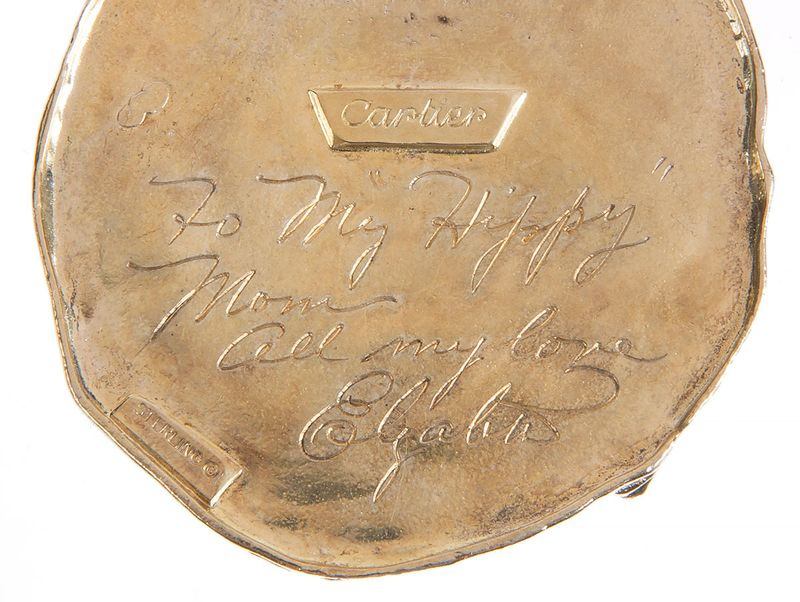 Cartier
To My "Hippy"
Mom
All my love
STERLING ©